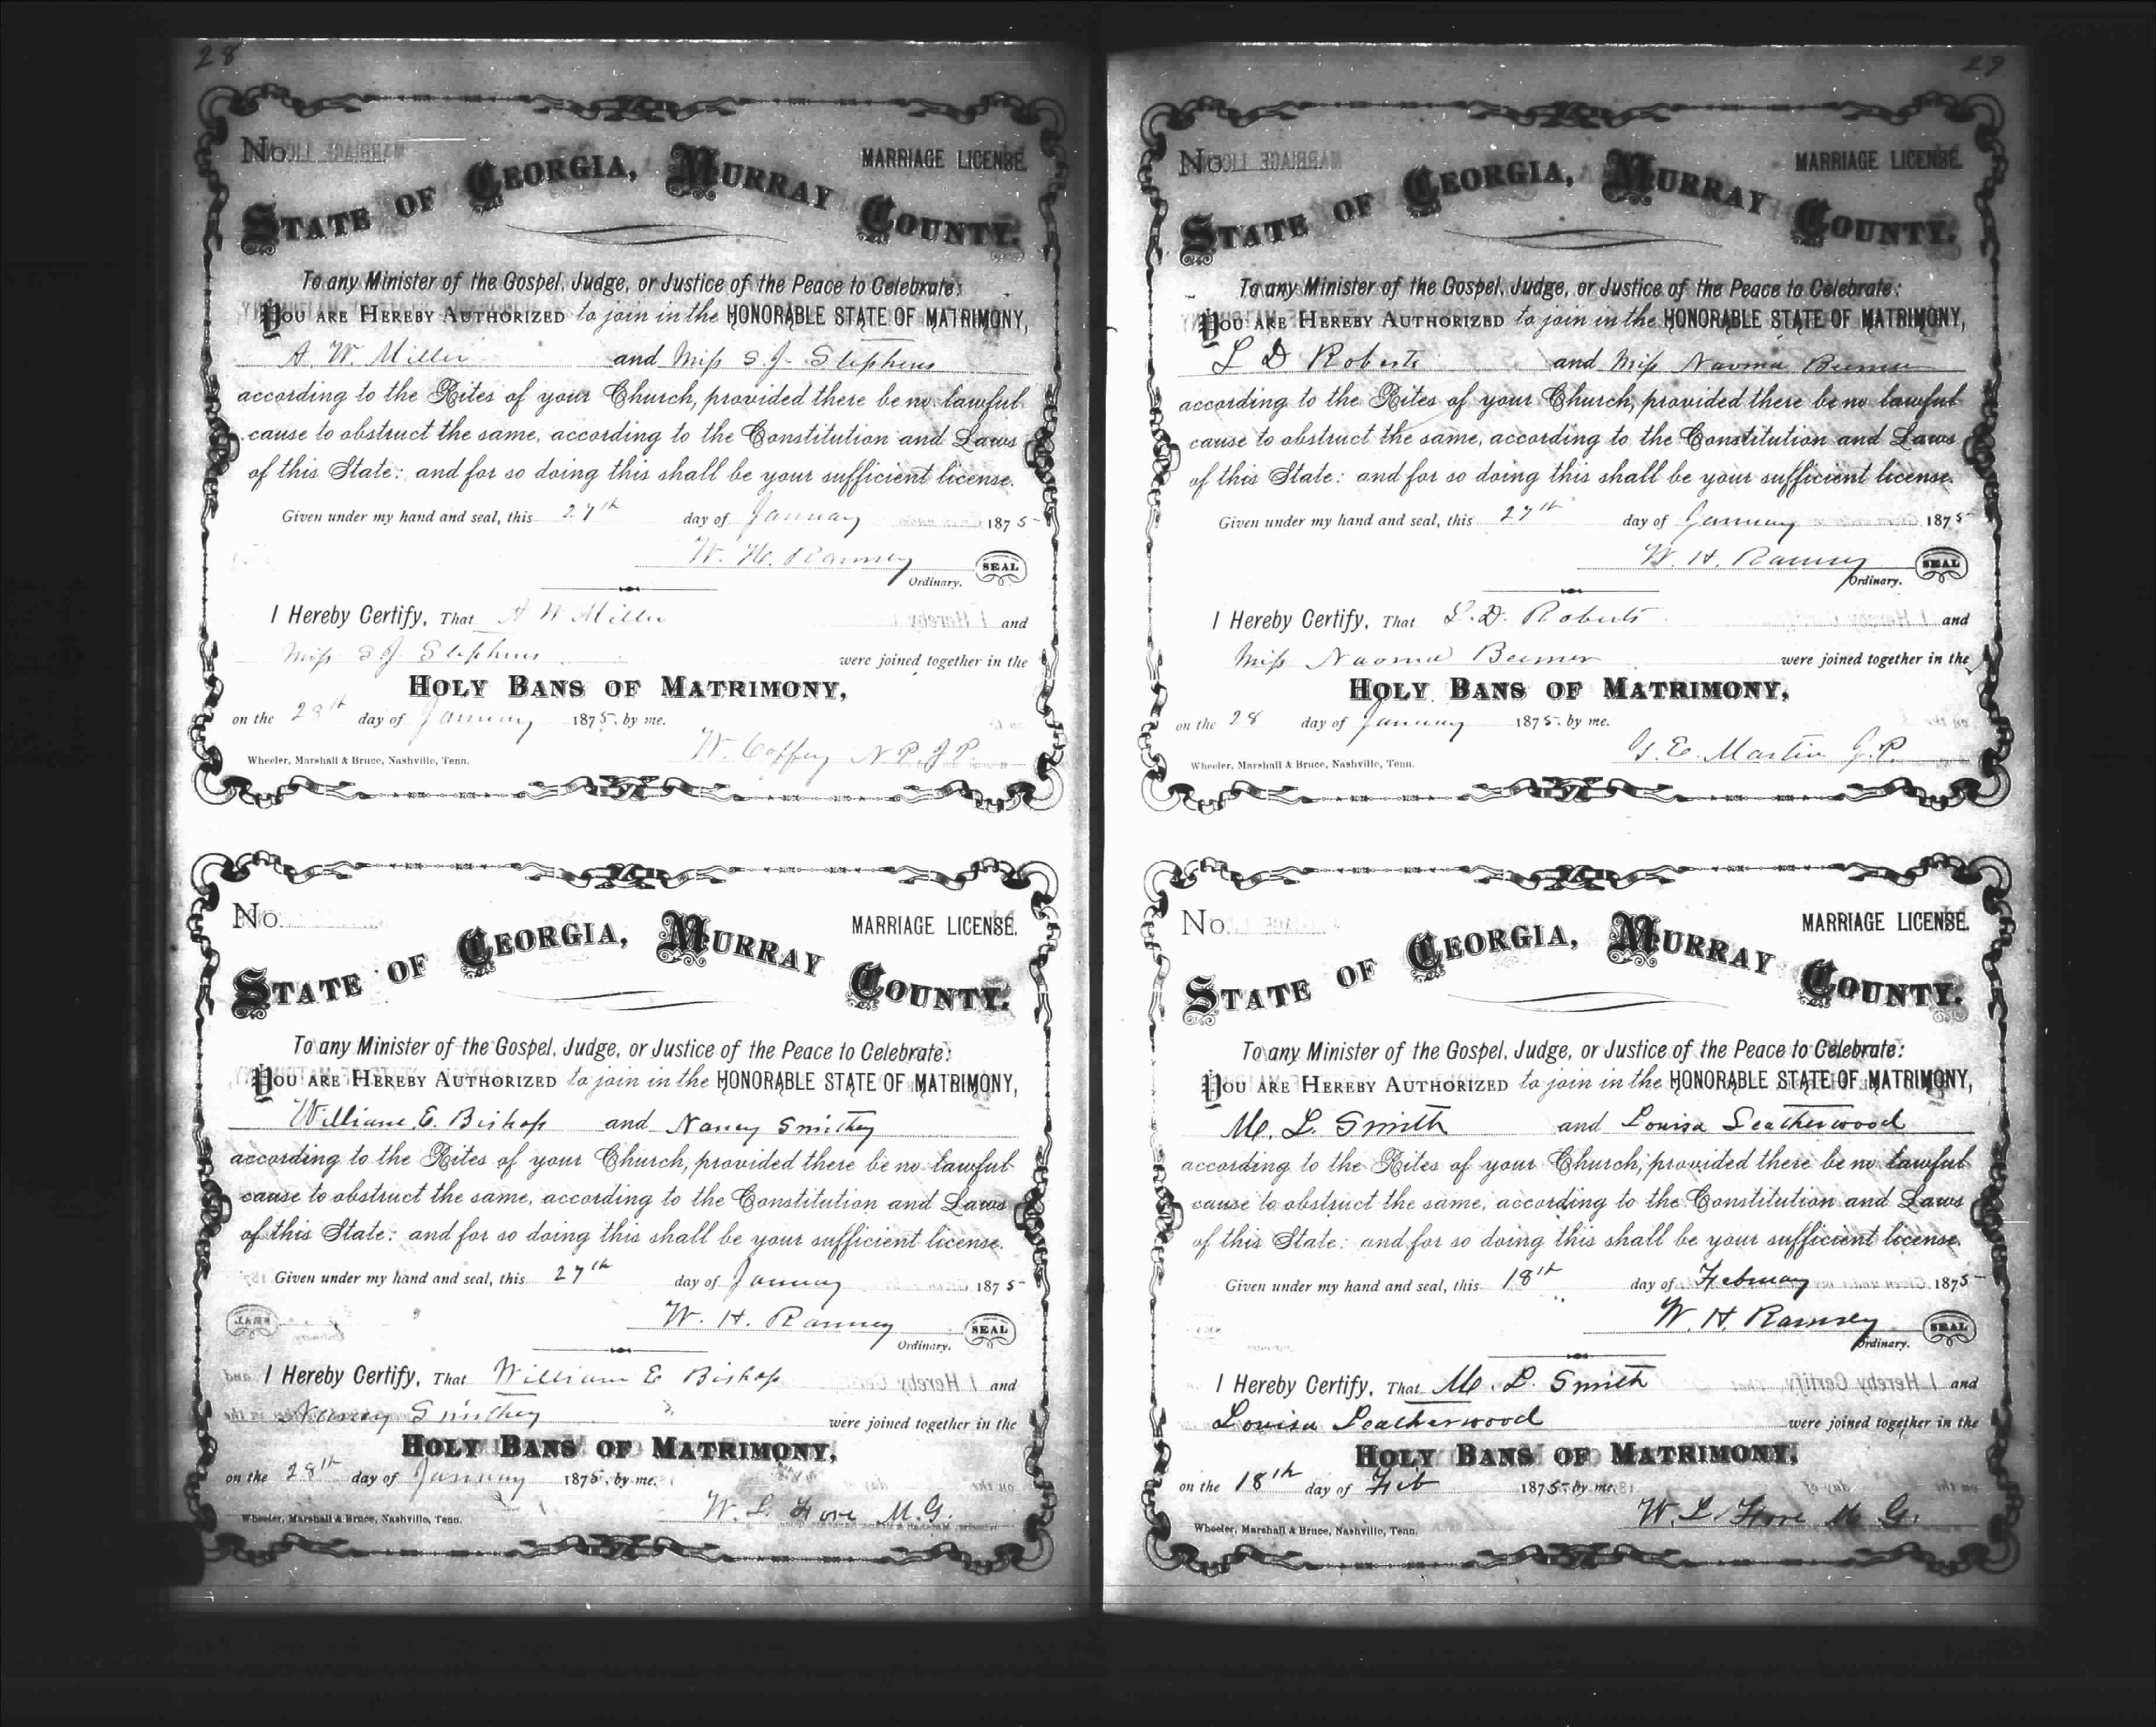 28
No.
MARRIAGE LICENSE.
STATE OF GEORGIA, MURRAY COUNTY.
To any Minister of the Gospel, Judge, or Justice of the Peace to Celebrate:
YOU ARE HEREBY AUTHORIZED to join in the HONORABLE STATE OF MATRIMONY,
A. W. Miller and Miss S. J. Stephens
according to the Rites of your Church, provided there be no lawful
cause to obstruct the same, according to the Constitution and Laws
of this State: and for so doing this shall be your sufficient license.
Given under my hand and seal, this 27th day of January 1875
W. H. Ramsey SEAL
Ordinary.
I Hereby Certify, That A W Miller and
Miss S J Stephens were joined together in the
HOLY BANS OF MATRIMONY,
on the 28th day of January 1875, by me.
W. Coffey N.P.J.P.
Wheeler, Marshall & Bruce, Nashville, Tenn.
No.
MARRIAGE LICENSE.
STATE OF GEORGIA, MURRAY COUNTY.
To any Minister of the Gospel, Judge, or Justice of the Peace to Celebrate:
YOU ARE HEREBY AUTHORIZED to join in the HONORABLE STATE OF MATRIMONY,
William E. Bishop and Nancy Smithey
according to the Rites of your Church, provided there be no lawful
cause to obstruct the same, according to the Constitution and Laws
of this State: and for so doing this shall be your sufficient license.
Given under my hand and seal, this 27th day of January 1875
W. H. Ramsey SEAL
Ordinary.
I Hereby Certify, That William E Bishop and
Nancy Smithey were joined together in the
HOLY BANS OF MATRIMONY,
on the 28th day of January 1875, by me.
W. L. Fore M.G.
Wheeler, Marshall & Bruce, Nashville, Tenn.
29
No.
MARRIAGE LICENSE.
STATE OF GEORGIA, MURRAY COUNTY.
To any Minister of the Gospel, Judge, or Justice of the Peace to Celebrate:
YOU ARE HEREBY AUTHORIZED to join in the HONORABLE STATE OF MATRIMONY,
L D Roberts and Miss Naoma Beemer
according to the Rites of your Church, provided there be no lawful
cause to obstruct the same, according to the Constitution and Laws
of this State: and for so doing this shall be your sufficient license.
Given under my hand and seal, this 27th day of January 1875
W. H. Ramsey SEAL
Ordinary.
I Hereby Certify, That L. D. Roberts and
Miss Naoma Beemer were joined together in the
HOLY BANS OF MATRIMONY,
on the 28 day of January 1875, by me.
E. Martin J.P.
Wheeler, Marshall & Bruce, Nashville, Tenn.
No.
MARRIAGE LICENSE.
STATE OF GEORGIA, MURRAY COUNTY.
To any Minister of the Gospel, Judge, or Justice of the Peace to Celebrate:
YOU ARE HEREBY AUTHORIZED to join in the HONORABLE STATE OF MATRIMONY,
M. L. Smith and Louisa Leatherwood
according to the Rites of your Church, provided there be no lawful
cause to obstruct the same, according to the Constitution and Laws
of this State: and for so doing this shall be your sufficient license.
Given under my hand and seal, this 18th day of February 1875
W. H. Ramsey SEAL
Ordinary.
I Hereby Certify, That M. L. Smith and
Louisa Leatherwood were joined together in the
HOLY BANS OF MATRIMONY,
on the 18th day of Feb 1875, by me.
W. L. Fore M G.
Wheeler, Marshall & Bruce, Nashville, Tenn.